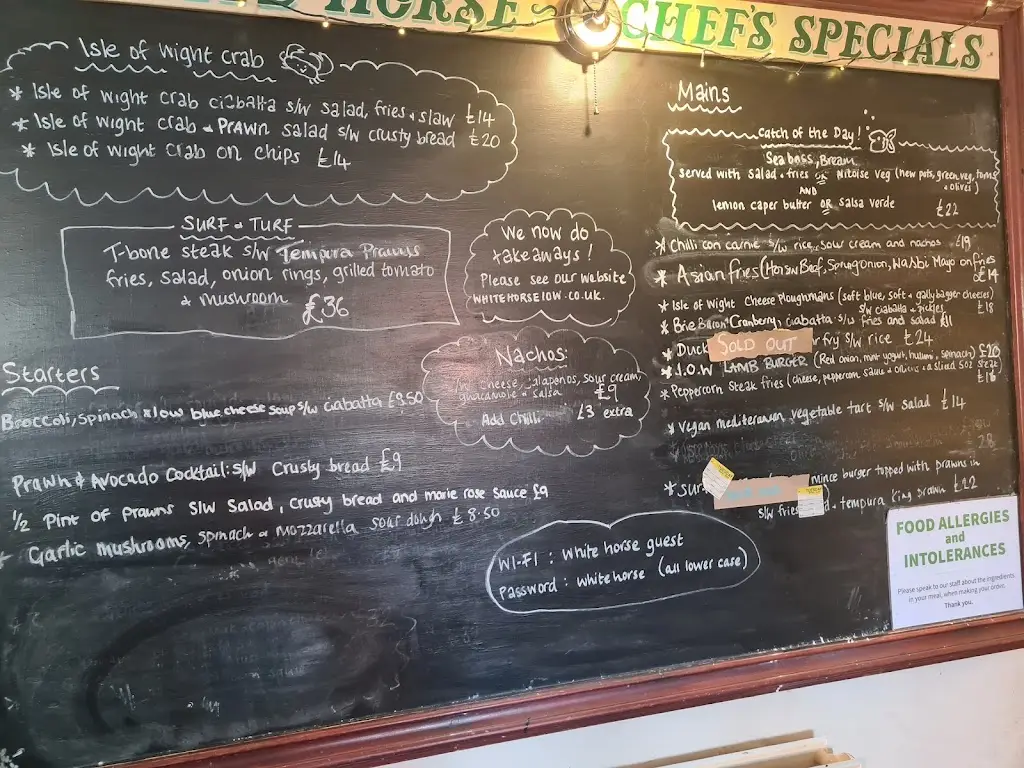 HORSE ~ CHEF'S SPECIALS
Isle of wight crab
* Isle of wight crab ciabatta s/w salad, fries + slaw £14
* Isle of wight crab + Prawn salad s/w crusty bread £20
* Isle of wight crab on chips £14
SURF + TURF
T-bone steak s/w Tempura Prawns
fries, salad, onion rings, grilled tomato
+ mushroom £36
We now do
takeaways!
Please see our website
WHITEHORSEIOW.CO.UK.
Nachos:
cheese, Jalapenos, sour cream,
guacamole + salsa £9
Add Chilli £3 extra
Starters
Broccoli, spinach & Iow blue cheese soup s/w ciabatta £8.50
Prawn & Avocado Cocktail: s/w Crusty bread £9
1/2 Pint of Prawns s/w Salad, crusty bread and marie rose sauce £9
Garlic mushrooms, spinach + mozzarella sour dough £8.50
WI-FI : white horse guest
password : whitehorse (all lower case)
Mains
Catch of the Day!
Seabass, Bream
served with salad + fries or nitoise veg (new pots, green veg,
+ olives)
AND
lemon caper butter OR salsa verde £22
* Chilli con carne s/w rice, sour cream and nachos £19
* Asian fries (Hoisin Beef, Spring Onion, Wasbi Mayo on fries
£14
* Isle of Wight Cheese Ploughmans (soft blue, soft + gallybagger cheeses)
s/w ciabatta + pickles £18
* Brie Bacon + Cranberry, ciabatta s/w fries and salad £11
* Duck SOLD OUT fry s/w rice £24
* I.O.W LAMB BURGER (Red onion, mint yogurt, hallumi, spinach) £20
* Peppercorn Steak fries (cheese, peppercorn sauce + onions + sliced 5oz steak
£16
* Vegan mediteranean vegetable tart s/w salad £14
28
* sur mince burger topped with prawns in
s/w fries + tempura king prawn £22
FOOD ALLERGIES
and
INTOLERANCES
Please speak to our staff about the ingredients
in your meal, when making your order.
Thank you.